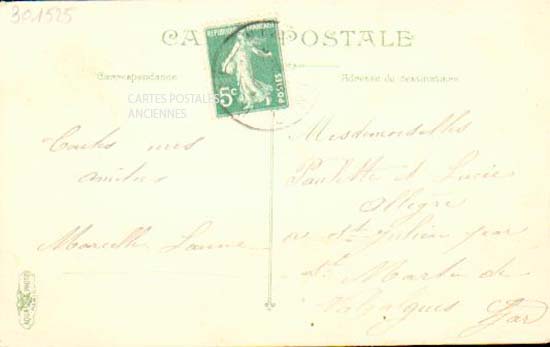 30.1525
CARTE POSTALE
REPUBLIQUE FRANÇAISE
5c POSTES
Correspondance
Adresse du destinataire
CARTES POSTALES
ANCIENNES
Toutes mes
amitiés
Marcelle
Mesdemoiselles
Paulette et Lucie
Allègre
St Julien par
St Martin de
Valgalgues
Gard